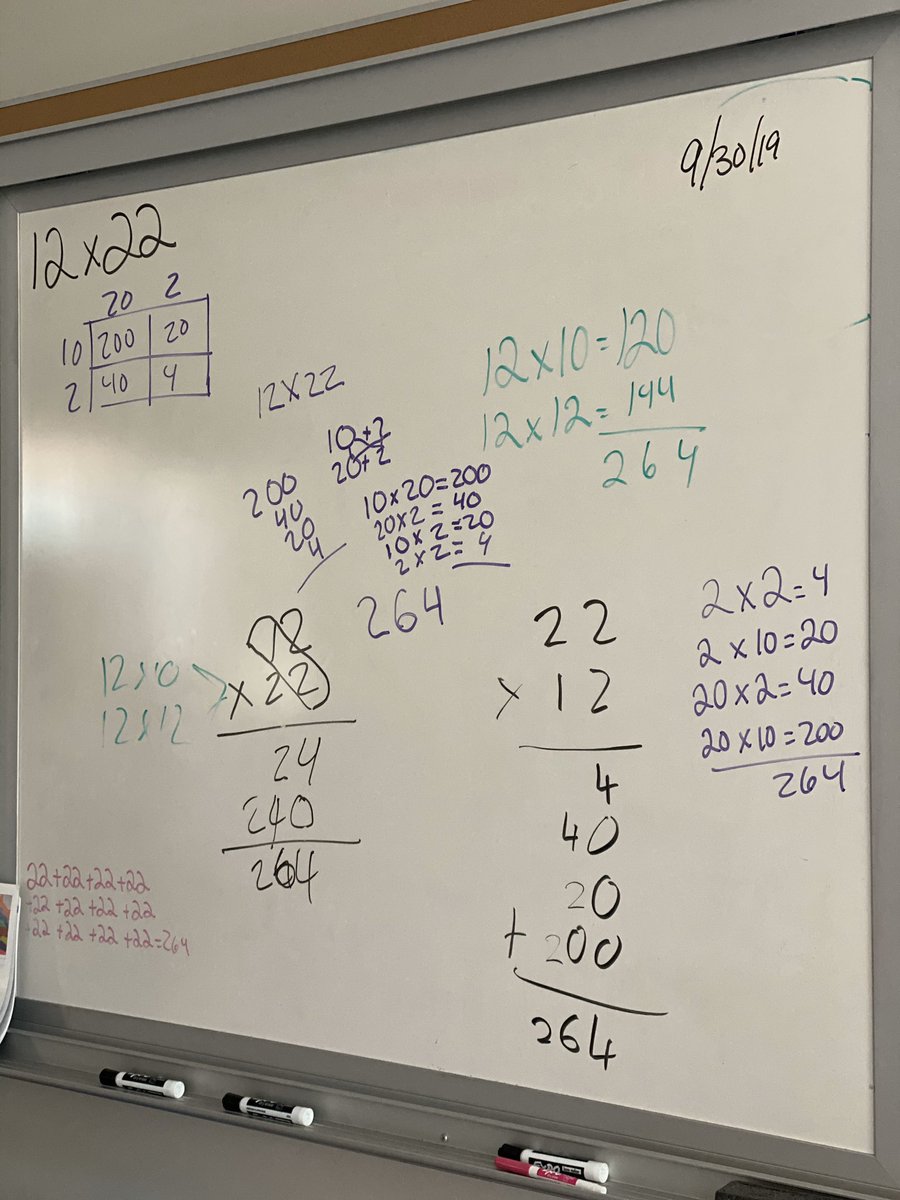 9/30/19
12 x 22
20 2
10 200 20
2 40 4
12 x 22
10 + 2
20 + 2
200
40
20
4
10 x 20 = 200
20 x 2 = 40
10 x 2 = 20
2 x 2 = 4
264
12 x 10 = 120
12 x 12 = 144
264
12 x 10
12 x 12
12
x 22
24
240
264
22
x 12
4
40
20
+ 200
264
2 x 2 = 4
2 x 10 = 20
20 x 2 = 40
20 x 10 = 200
264
22 + 22 + 22 + 22
+22 + 22 + 22 + 22
+22 + 22 + 22 + 22 = 264